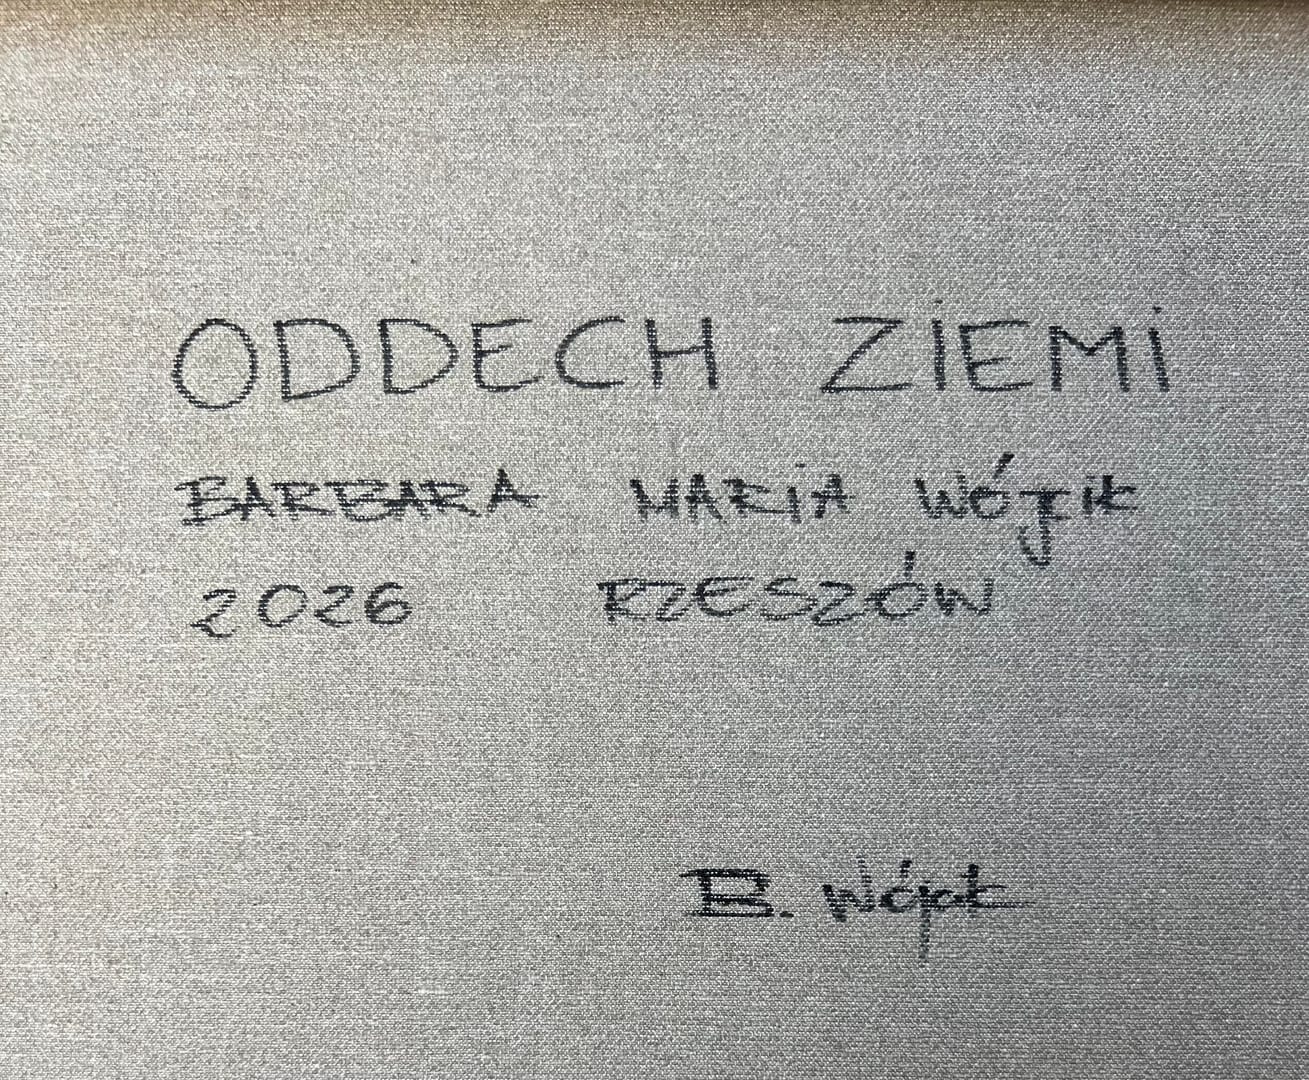 ODDECH ZIEMI
BARBARA MARIA WÓJCIK
2026 RZESZÓW
B. Wójcik